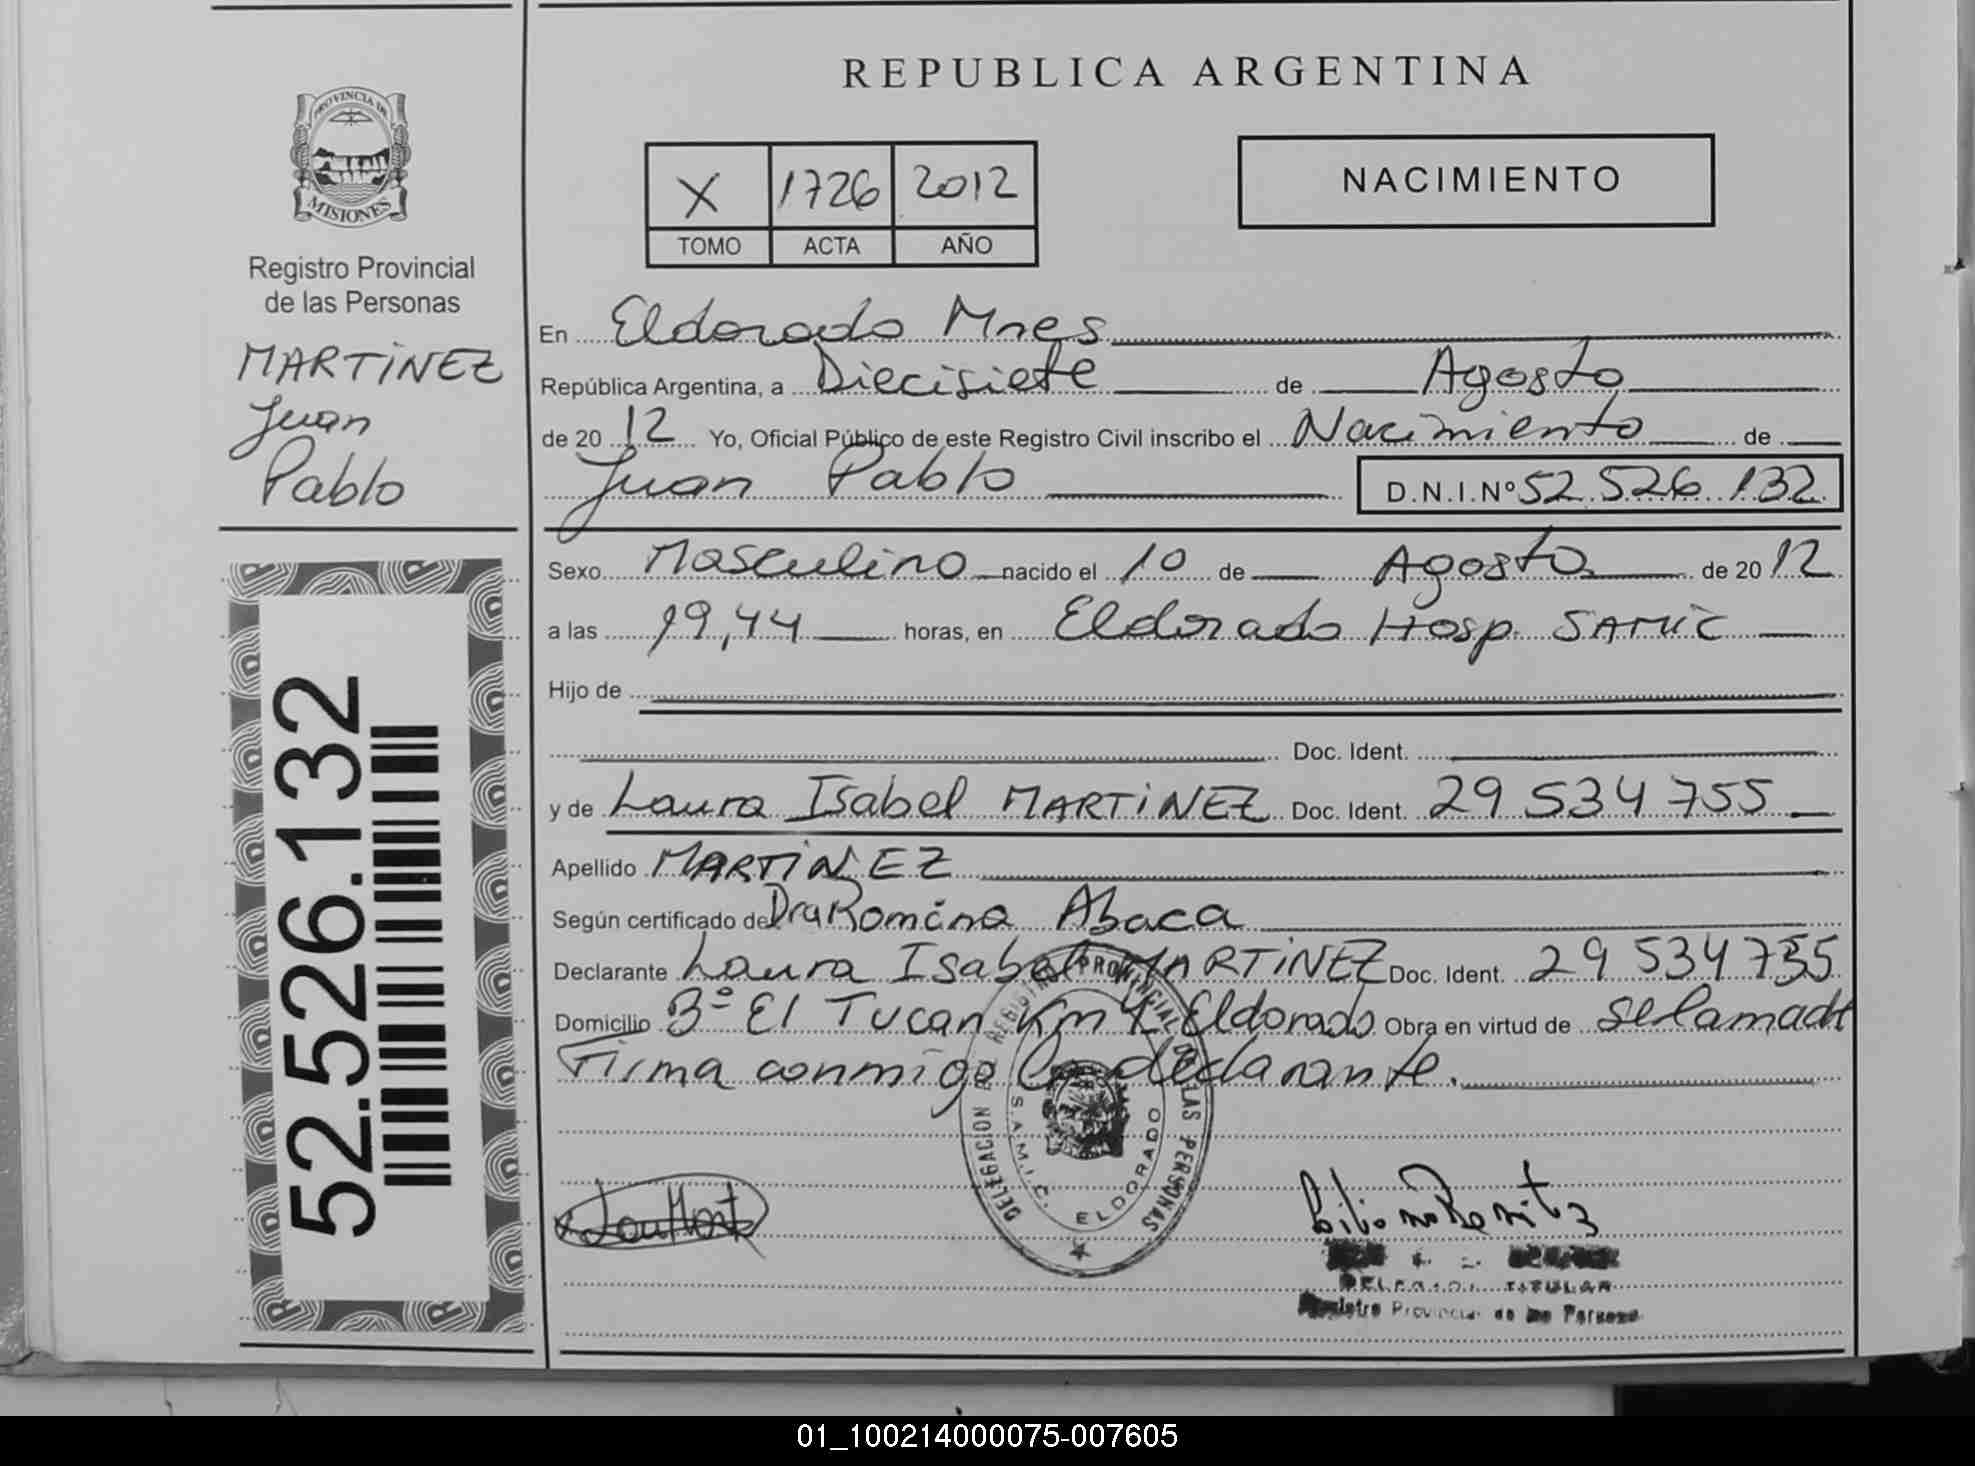 REPUBLICA ARGENTINA
PROVINCIA DE
MISIONES
Registro Provincial
de las Personas
MARTINEZ
Juan
Pablo
52.526.132
X 1726 2012
TOMO ACTA AÑO
NACIMIENTO
En Eldorado Mnes
República Argentina, a Diecisiete de Agosto
de 20 12 Yo, Oficial Público de este Registro Civil inscribo el Nacimiento de
Juan Pablo D.N.I.Nº 52.526.132
Sexo Masculino nacido el 10 de Agosto de 20 12
a las 19,44 horas, en Eldorado Hosp. SAMIC
Hijo de
Doc. Ident.
y de Laura Isabel MARTINEZ Doc. Ident. 29 534 755
Apellido MARTINEZ
Según certificado de Dra Romina Abaca
Declarante Laura Isabel MARTINEZ Doc. Ident. 29 534 755
Domicilio Bº El Tucan Km 4 Eldorado Obra en virtud de ser la madre
Firma conmigo la declarante.
DELEGACION DEL REGISTRO PROVINCIAL DE LAS PERSONAS
S.A.M.I.C. ELDORADO
TITULAR
Registro Provincial de las Personas
01_100214000075-007605